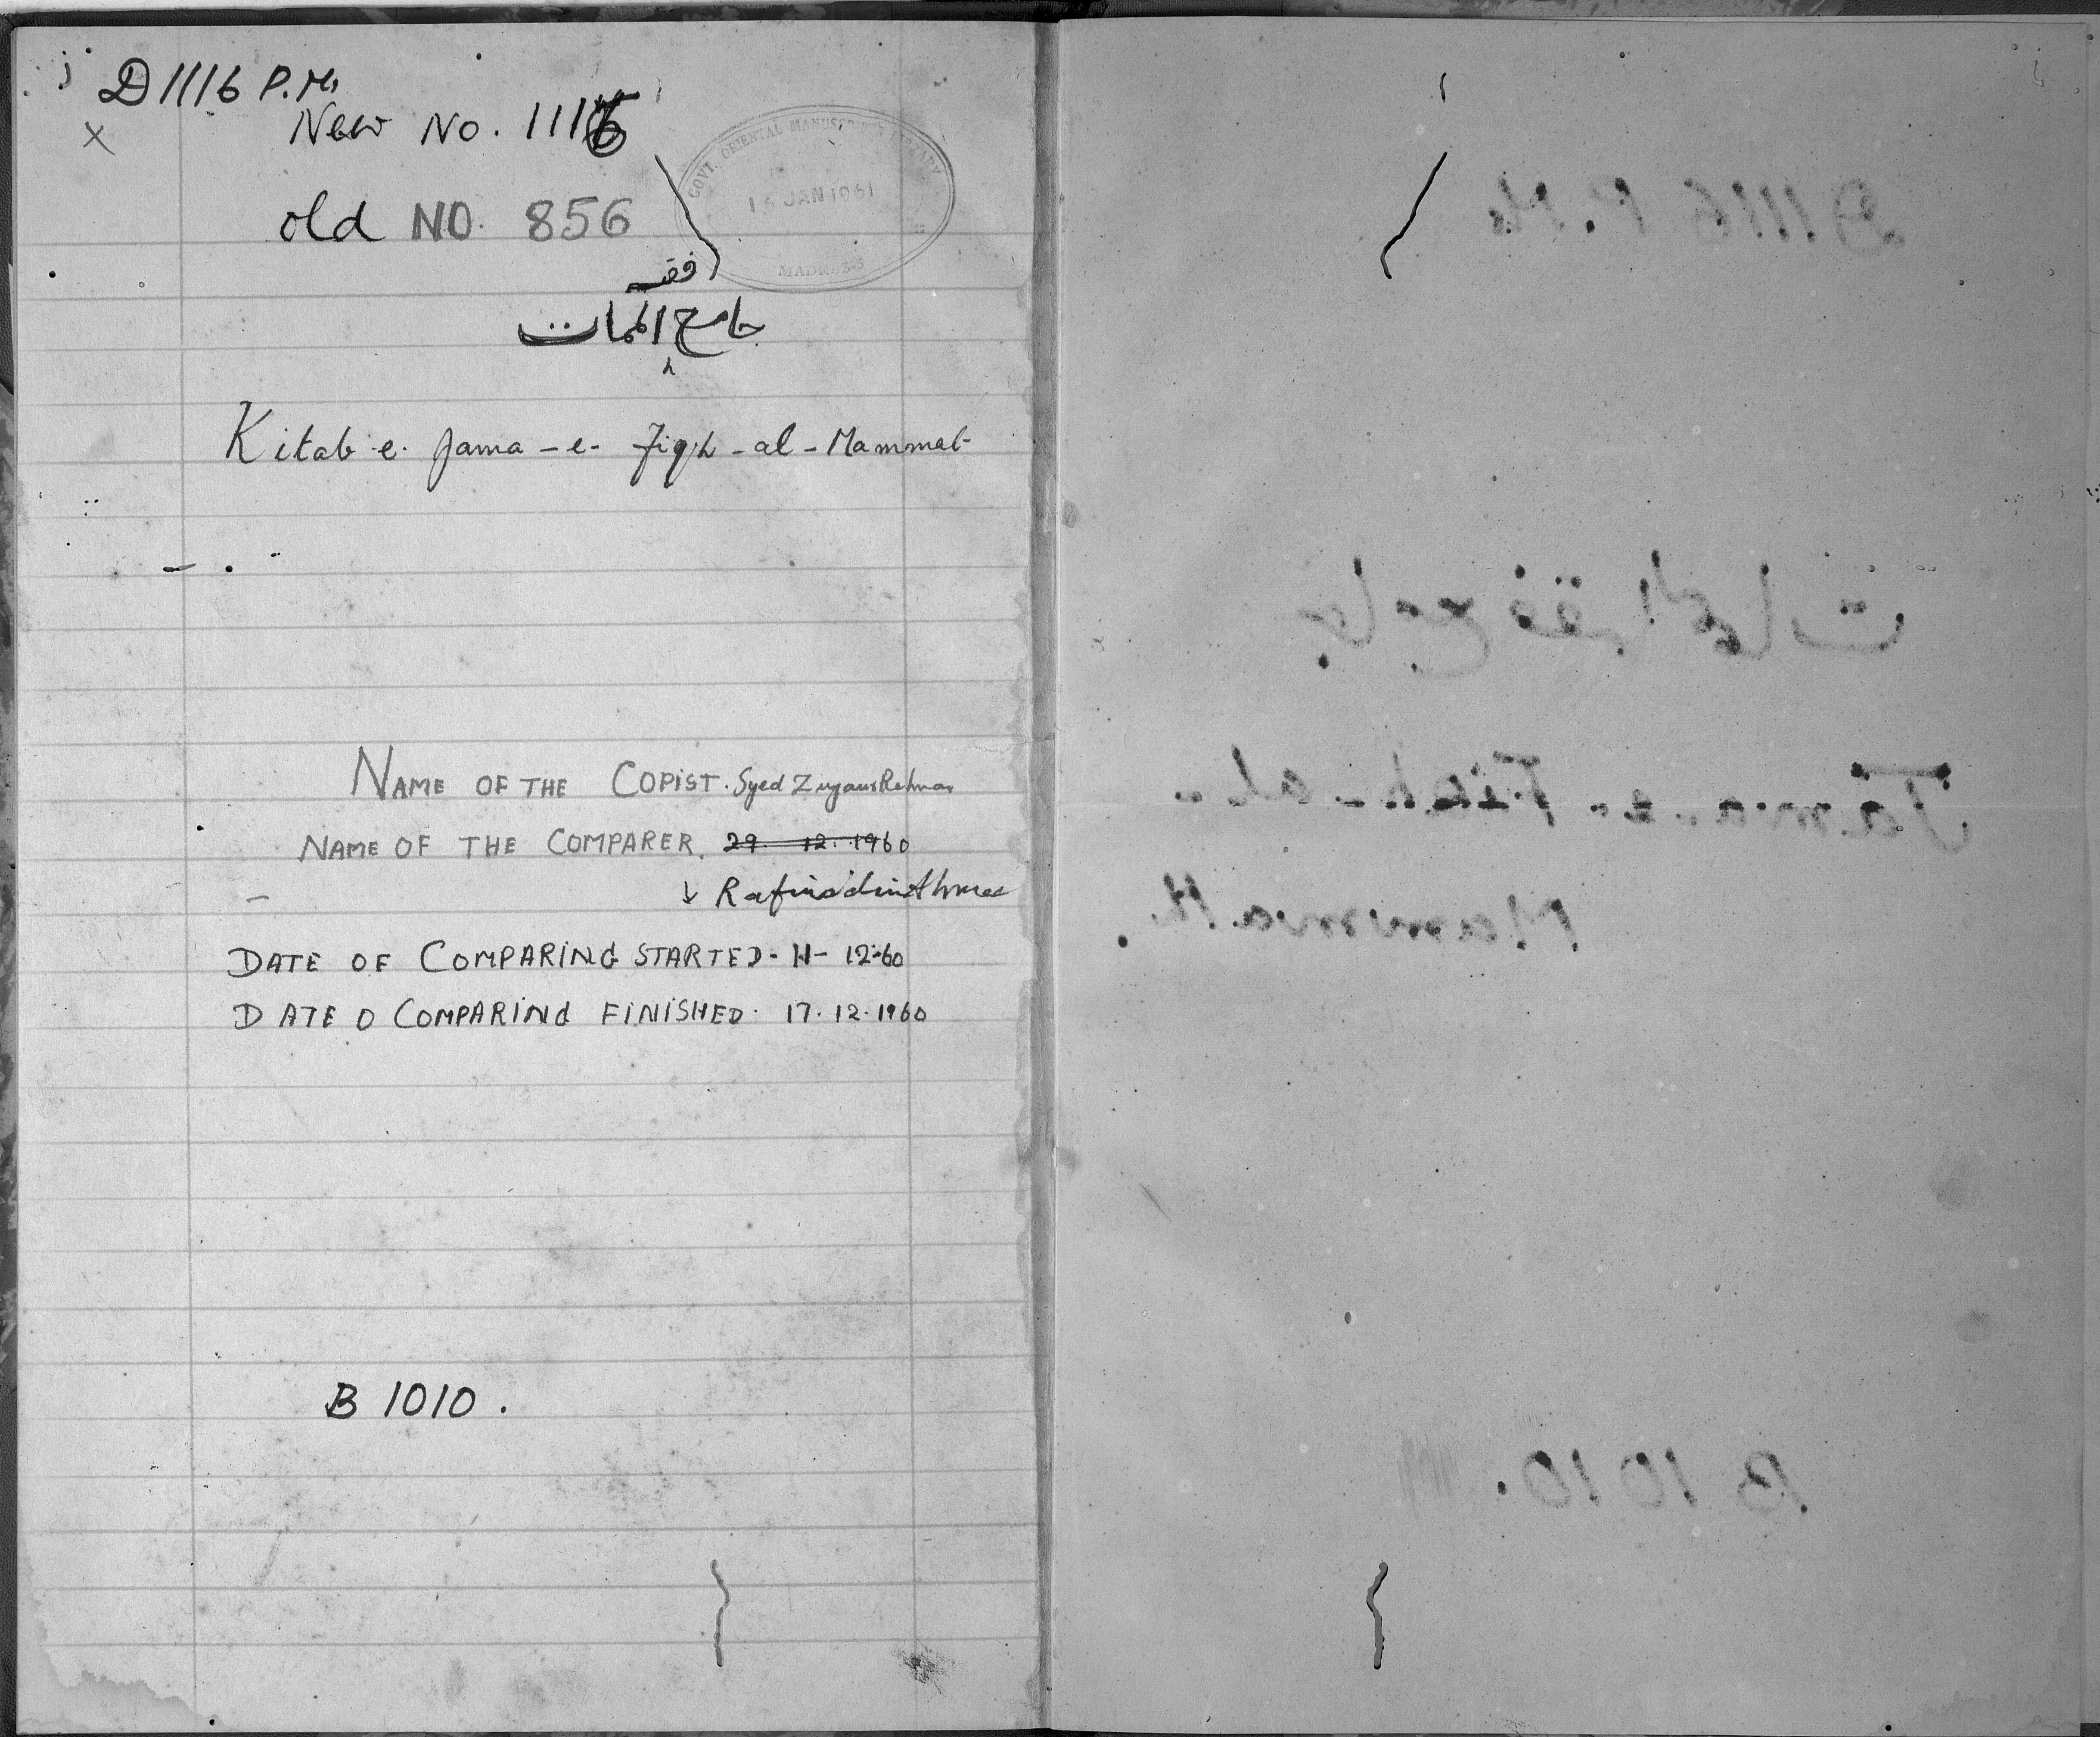 D 1116 P.M.
New No. 1116
old NO. 856
GOVT. ORIENTAL MANUSCRIPTS LIBRARY
JAN 1961
MADRAS-5
فقہ
جامع الممات
Kitab-e-Jama-e-Fiqh-al-Mammat
NAME OF THE COPIST. Syed
NAME OF THE COMPARER. 29. 12. 1960
DATE OF COMPARING STARTED- 11- 12-60
DATE O COMPARING FINISHED. 17. 12. 1960
B 1010.
D 1116 P.M.
جامع فقہ الممات
Jama-e-Fiqh-al-
Mammath.
B 1010.